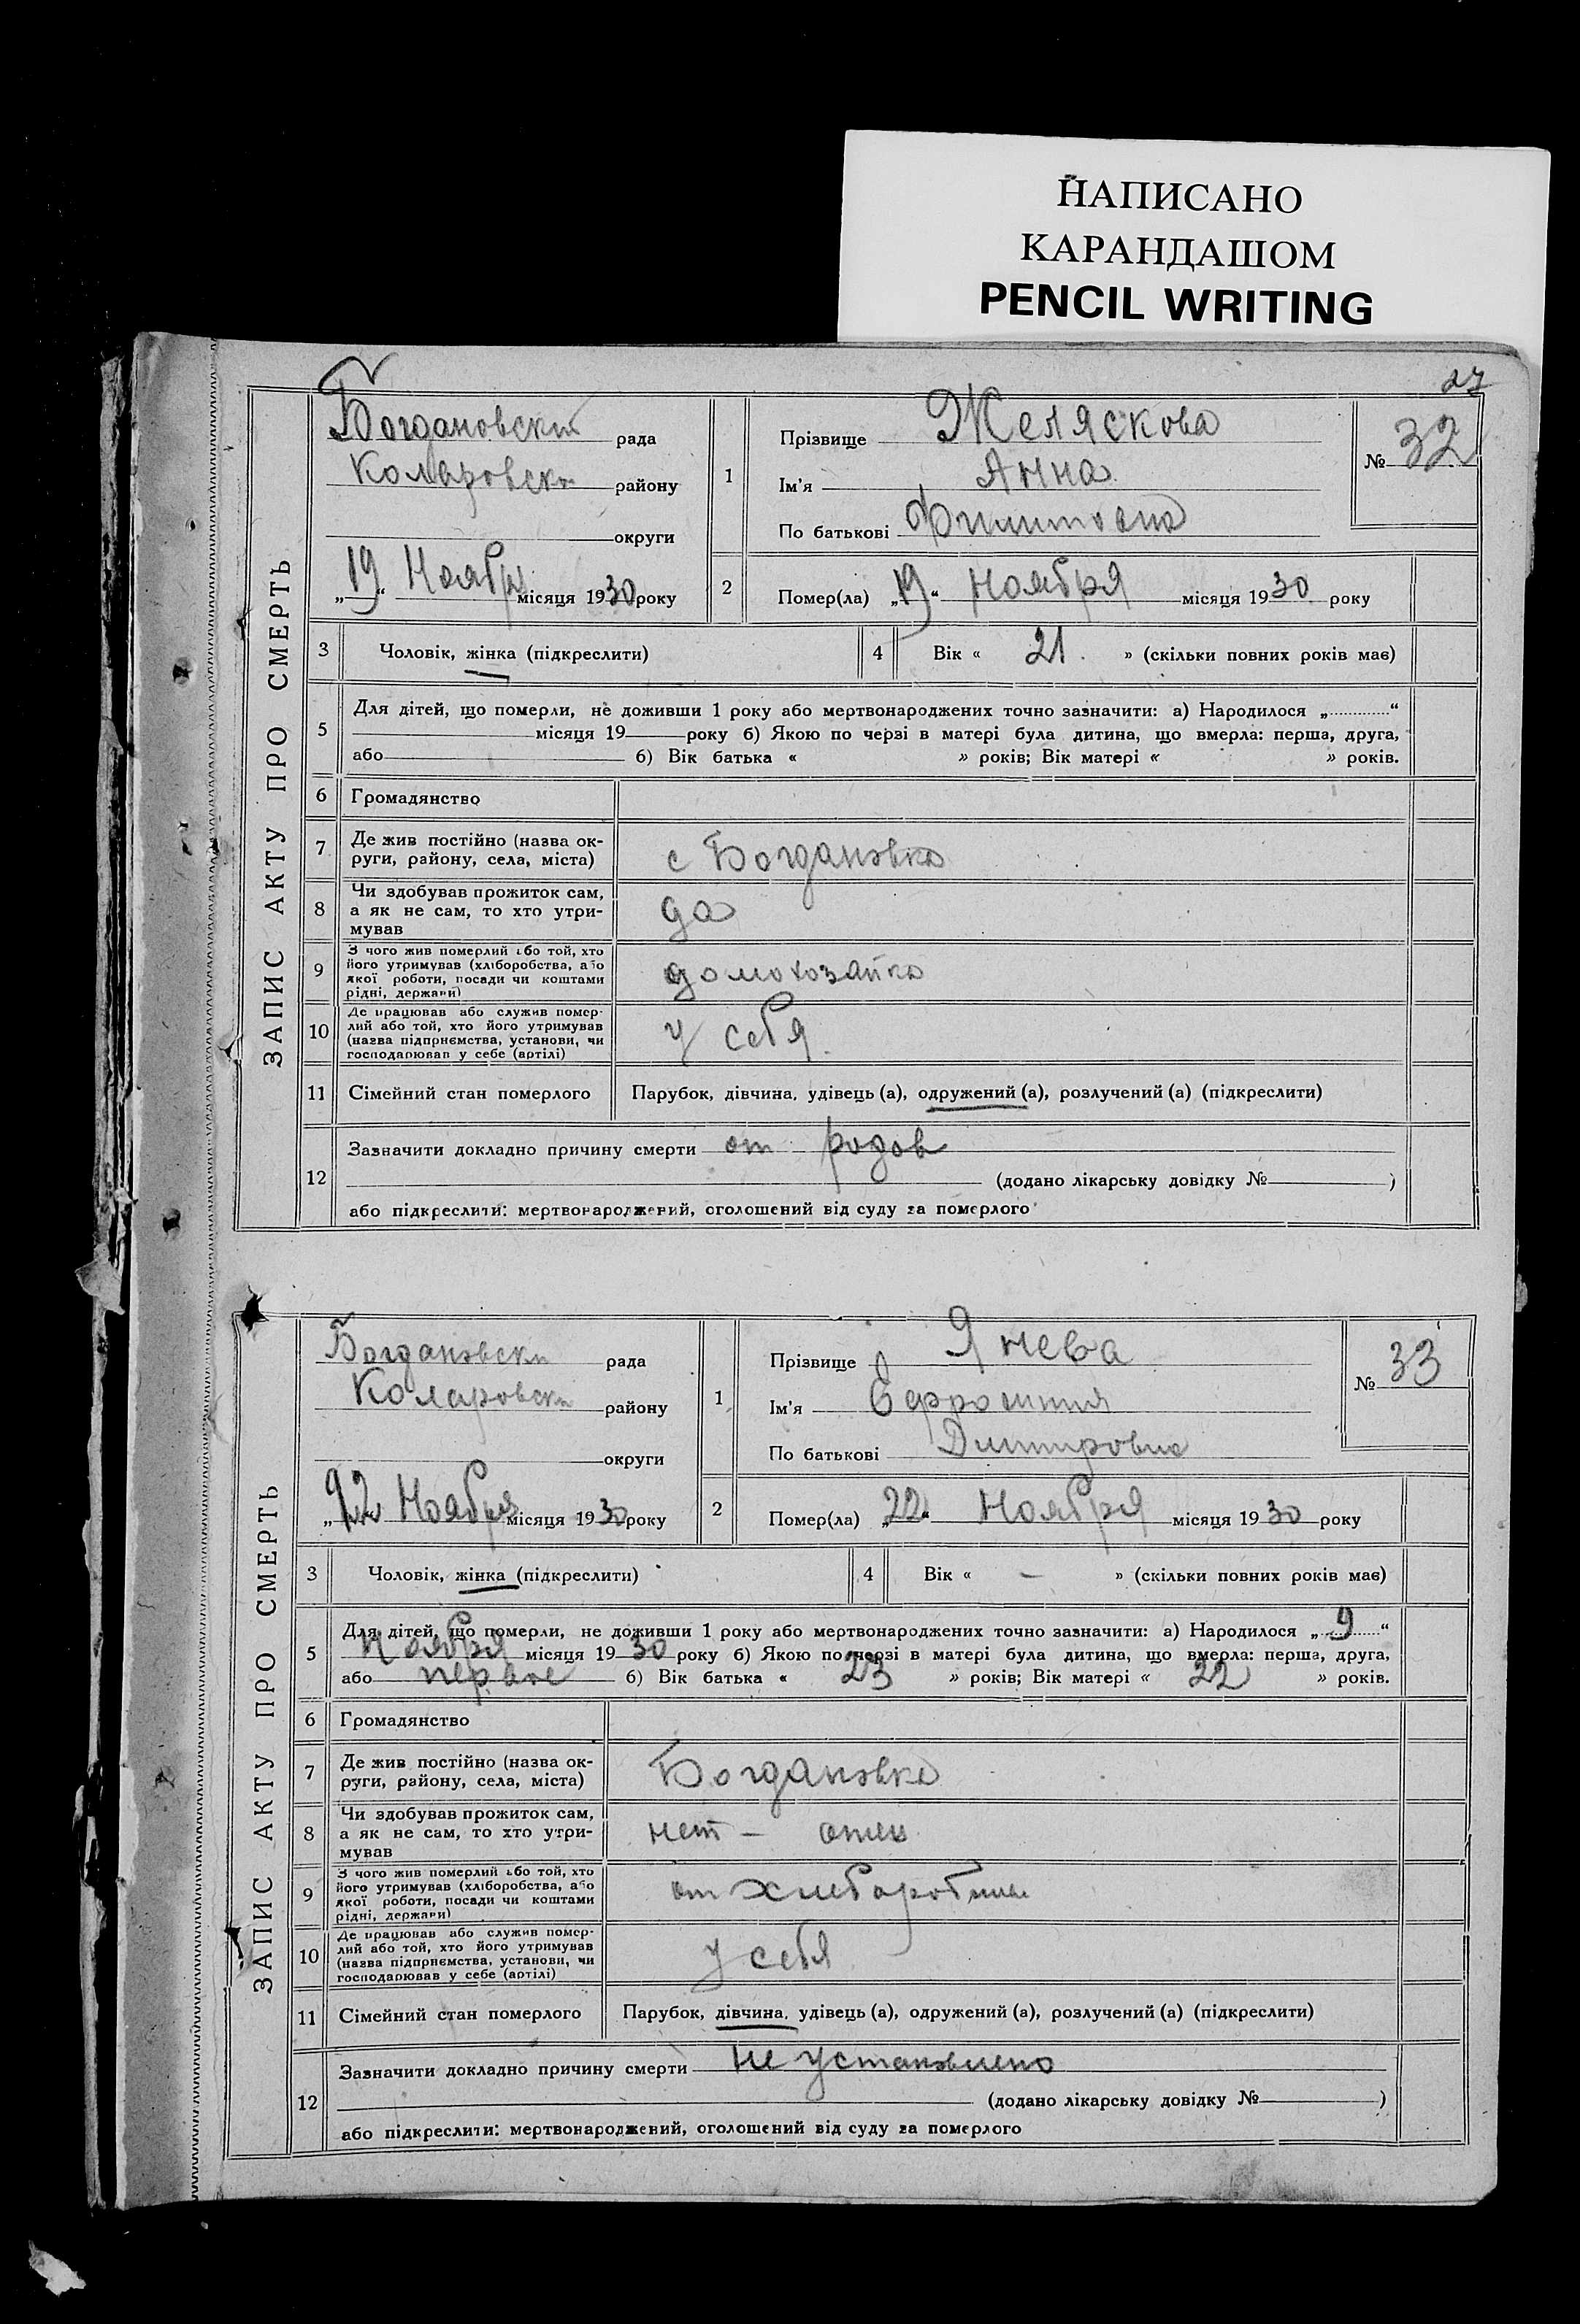 НАПИСАНО
КАРАНДАШОМ
PENCIL WRITING
27
ЗАПИС АКТУ ПРО СМЕРТЬ
Богдановски рада
Коларовски району
округи
„19“ Ноября місяця 1930 року
1
Прізвище Желяскова
Ім'я Анна
По батькові
№ 32
2 Помер(ла) „19“ Ноября місяця 1930 року
3 Чоловік, жінка (підкреслити)
4 Вік « 21. » (скільки повних років має)
5 Для дітей, що померли, не доживши 1 року або мертвонароджених точно зазначити: а) Народилося „ “
місяця 19 року б) Якою по черзі в матері була дитина, що вмерла: перша, друга,
або б) Вік батька « » років; Вік матері « » років.
6 Громадянство
7 Де жив постійно (назва ок-
руги, району, села, міста)
с Богдановка
8 Чи здобував прожиток сам,
а як не сам, то хто утри-
мував
да
9 З чого жив померлий або той, хто
його утримував (хліборобства, або
якої роботи, посади чи коштами
рідні, держави)
домохозайка
10 Де працював або служив помер-
лий або той, хто його утримував
(назва підприємства, установи, чи
господарював у себе (артілі)
у себя.
11 Сімейний стан померлого
Парубок, дівчина, удівець (а), одружений (а), розлучений (а) (підкреслити)
12 Зазначити докладно причину смерти от родов
(додано лікарську довідку № )
або підкреслити: мертвонароджений, оголошений від суду за померлого
ЗАПИС АКТУ ПРО СМЕРТЬ
Богдановски рада
Коларовски району
округи
„22“ Ноября місяця 1930 року
1
Прізвище Янева
Ім'я Ефросиния
По батькові Дмитровна
№ 33
2 Помер(ла) „22“ Ноября місяця 1930 року
3 Чоловік, жінка (підкреслити)
4 Вік « – » (скільки повних років має)
5 Для дітей, що померли, не доживши 1 року або мертвонароджених точно зазначити: а) Народилося „9“
Ноября місяця 1930 року б) Якою по черзі в матері була дитина, що вмерла: перша, друга,
або первое б) Вік батька « 23 » років; Вік матері « 22 » років.
6 Громадянство
7 Де жив постійно (назва ок-
руги, району, села, міста)
Богдановка
8 Чи здобував прожиток сам,
а як не сам, то хто утри-
мував
нет – отец
9 З чого жив померлий або той, хто
його утримував (хліборобства, або
якої роботи, посади чи коштами
рідні, держави)
от
10 Де працював або служив помер-
лий або той, хто його утримував
(назва підприємства, установи, чи
господарював у себе (артілі)
у себя
11 Сімейний стан померлого
Парубок, дівчина, удівець (а), одружений (а), розлучений (а) (підкреслити)
12 Зазначити докладно причину смерти не установлено
(додано лікарську довідку № )
або підкреслити: мертвонароджений, оголошений від суду за померлого